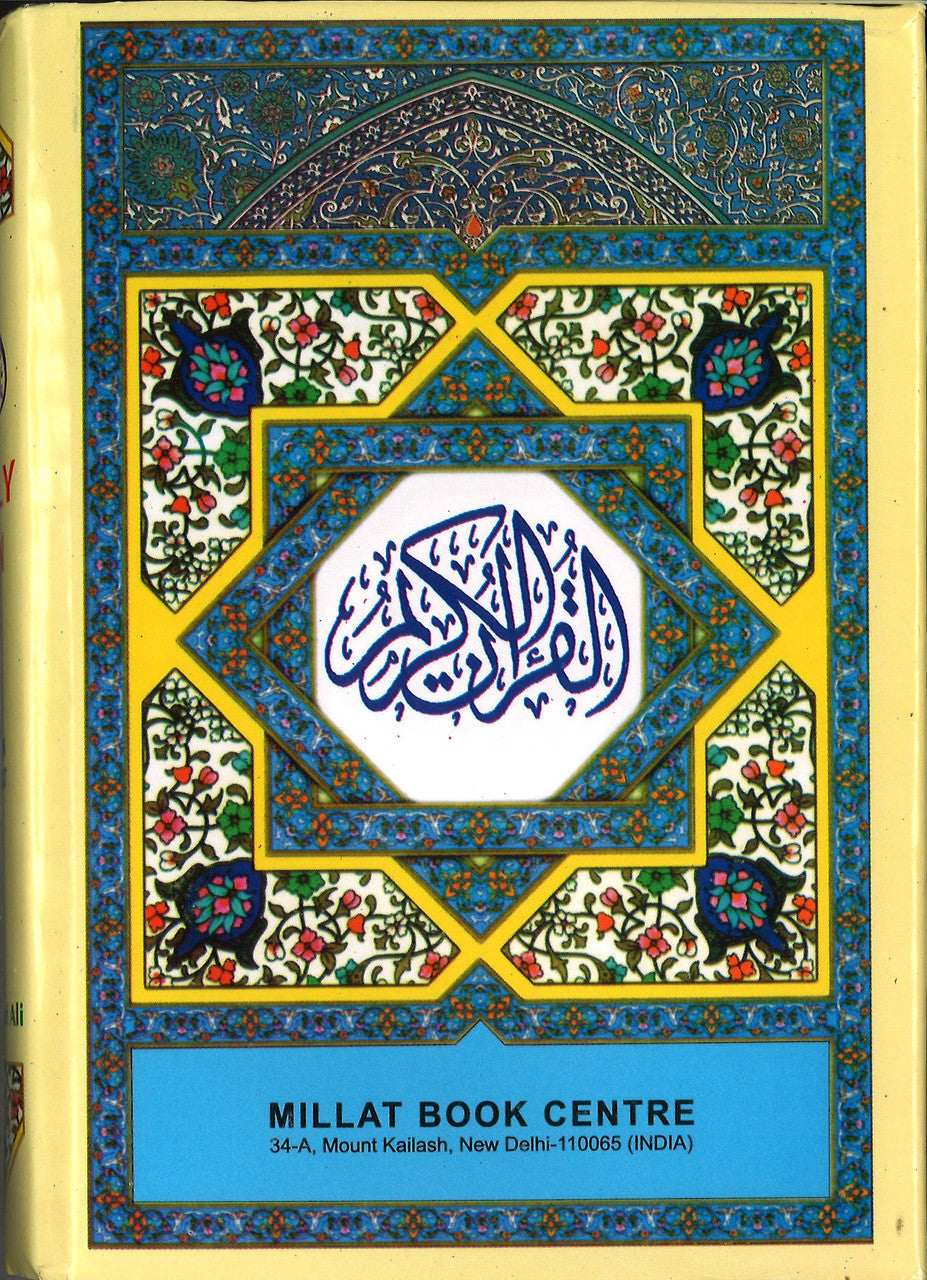 القرآن الكريم
MILLAT BOOK CENTRE
34-A, Mount Kailash, New Delhi-110065 (INDIA)
Y
Ali